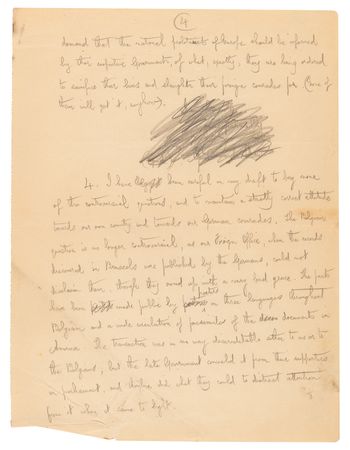 4
demand that the national proletariats of Europe should be informed
by their respective Governments, of what, exactly, they are being ordered
to sacrifice their lives and slaughter their foreign comrades for (None of
them will get it, anyhow).
4. I have been careful in my draft to beg none
of the controversial questions, and to maintain a strictly correct attitude
towards our own country and towards our German comrades. The Belgian
question is no longer controversial, as our Foreign Office, when the records
discovered in Brussels were published by the Germans, could not
disclaim them, though they owned up with a very bad grace. The facts
have been made public by posters in three languages throughout
Belgium and a wide circulation of facsimiles of the documents in
America. The transaction was in no way discreditable either to us or to
the Belgians; but the late Government concealed it from their supporters
in parliament, and did what they could to distract attention
from it when it came to light.